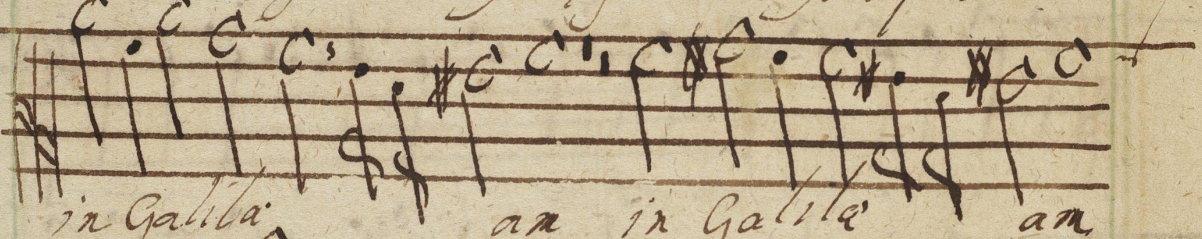 in Galilæ am in Galilæ am